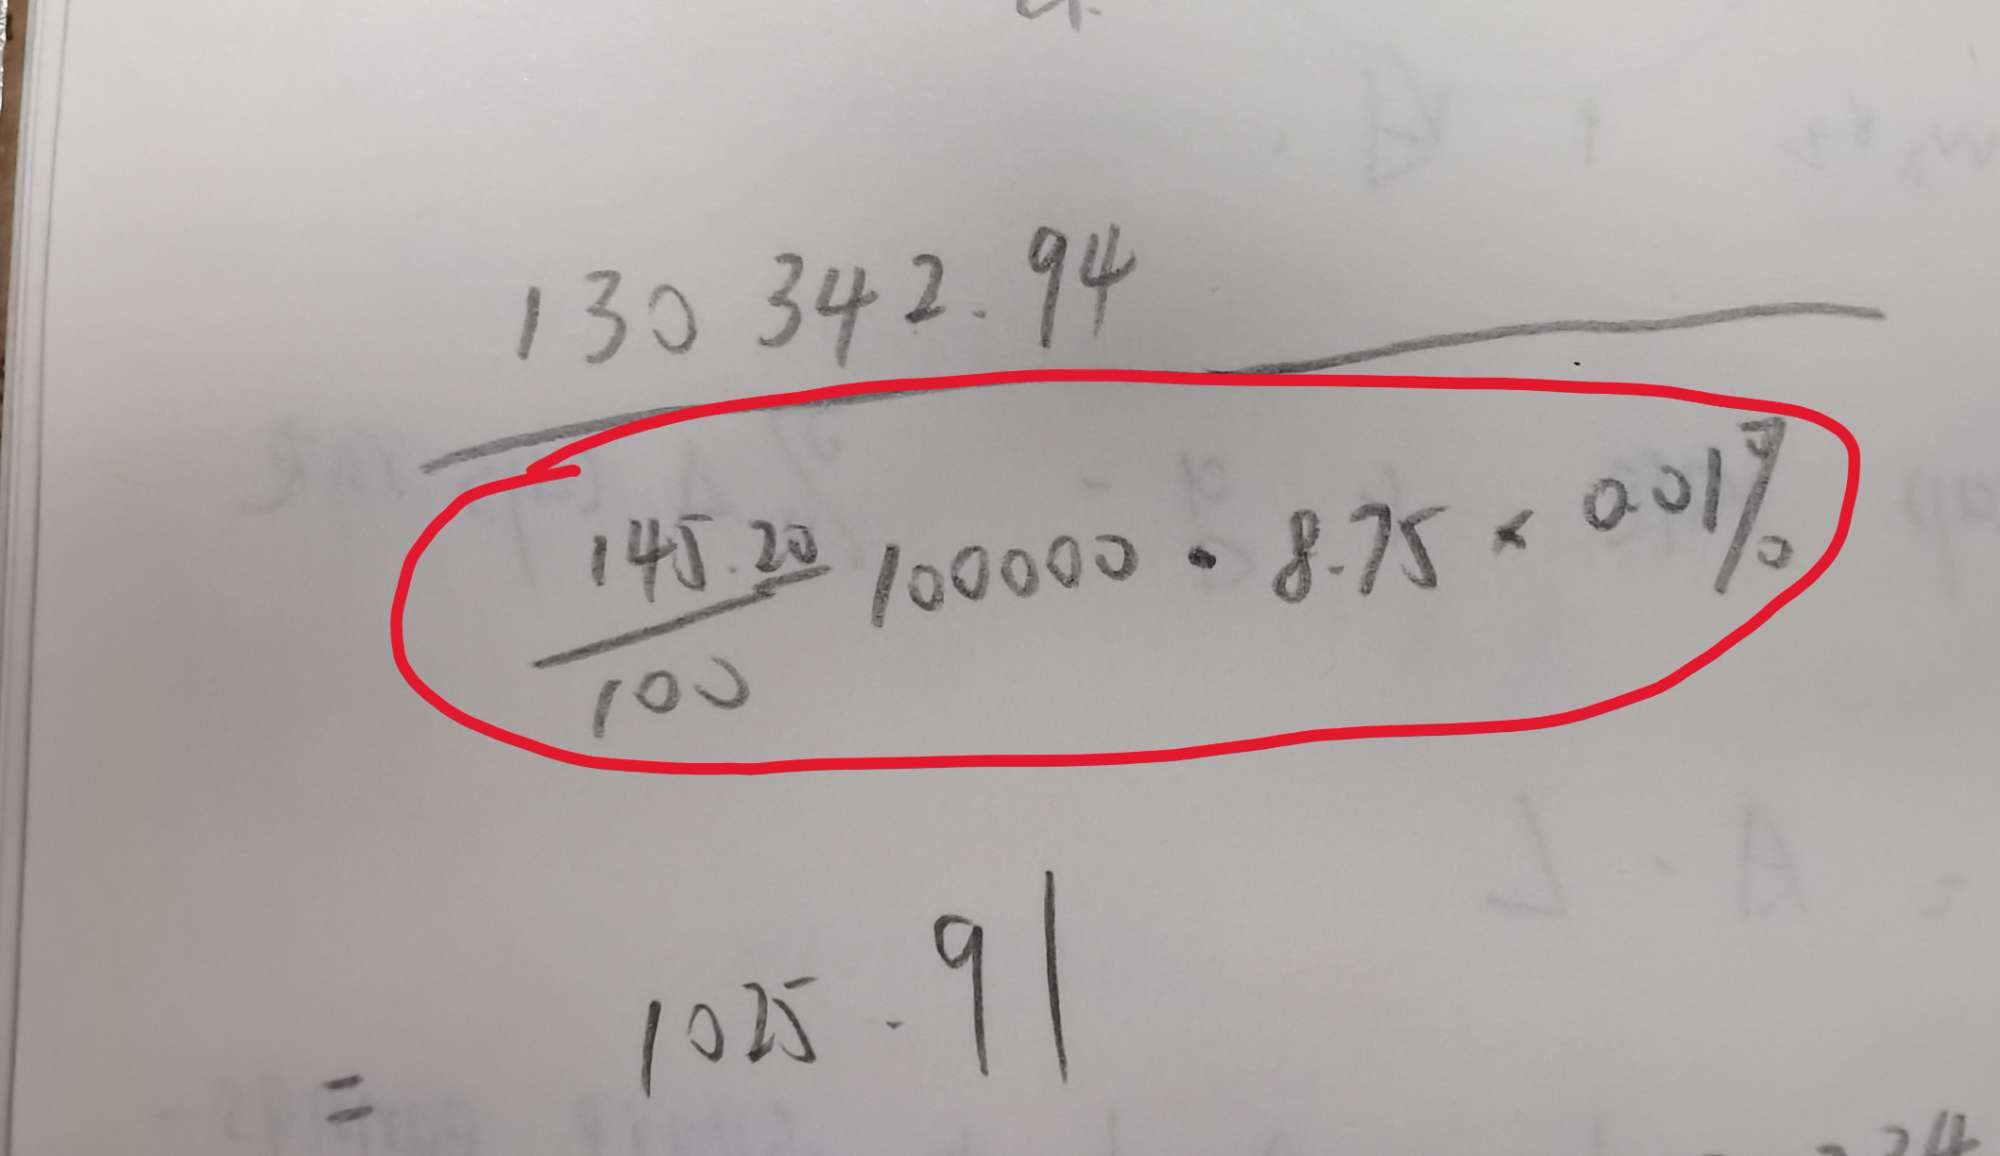 130 342.94
145.20
100
100000 · 8.75 × 0.01%
1025.91
=